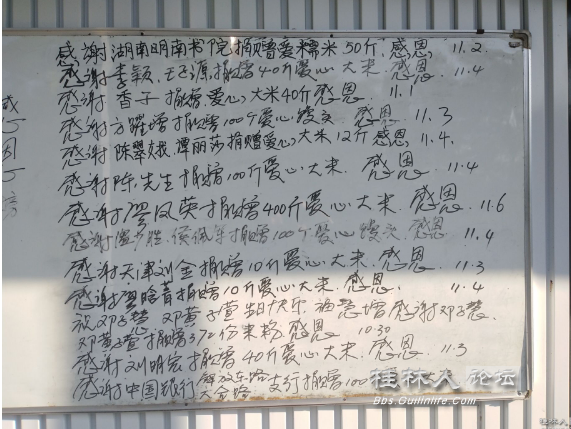 感谢湖南明南书院捐赠爱糯米50斤,感恩, 11.2.
感谢李颖、王源捐赠40斤爱心大米. 感恩. 11.4
感谢香子捐赠,爱心,大米40斤感恩. 11.1
感谢方 增捐赠100个爱心 感恩. 11.3
感谢陈翠娥.谭丽莎捐赠爱心大米12斤感恩, 11.4.
感谢陈先生捐赠100斤爱心大米. 感恩. 11.4
感谢 凤英捐赠400斤爱心大米. 感恩. 11.6
感谢 少胜. 捐赠100个爱心 感恩 11.4
感谢天津刘金捐赠10斤爱心大米. 感恩. 11.3
感谢 晗菁捐赠10斤爱心大米. 感恩. 11.4
祝邓子慧 邓黄子萱 生日快乐. 福慧增感谢邓子慧.
邓黄子萱捐赠372份米粉. 感恩 10.30
感谢刘明宏捐赠40斤爱心大米. 感恩. 11.3
感谢中国银行解放东路 支行捐赠100
桂林人论坛
Bbs.Guilinlife.Com
桂林人